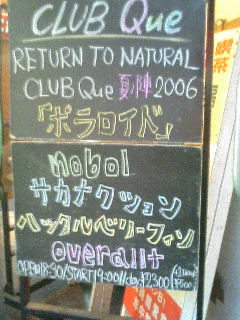 CLUB Que
RETURN TO NATURAL
CLUB Que 夏ノ陣 2006
『ポラロイド』
nobol
サカナクション
ハックルベリーフィン
overallt
OPEN18:30/START19:00//day¥2300/
喫
茶